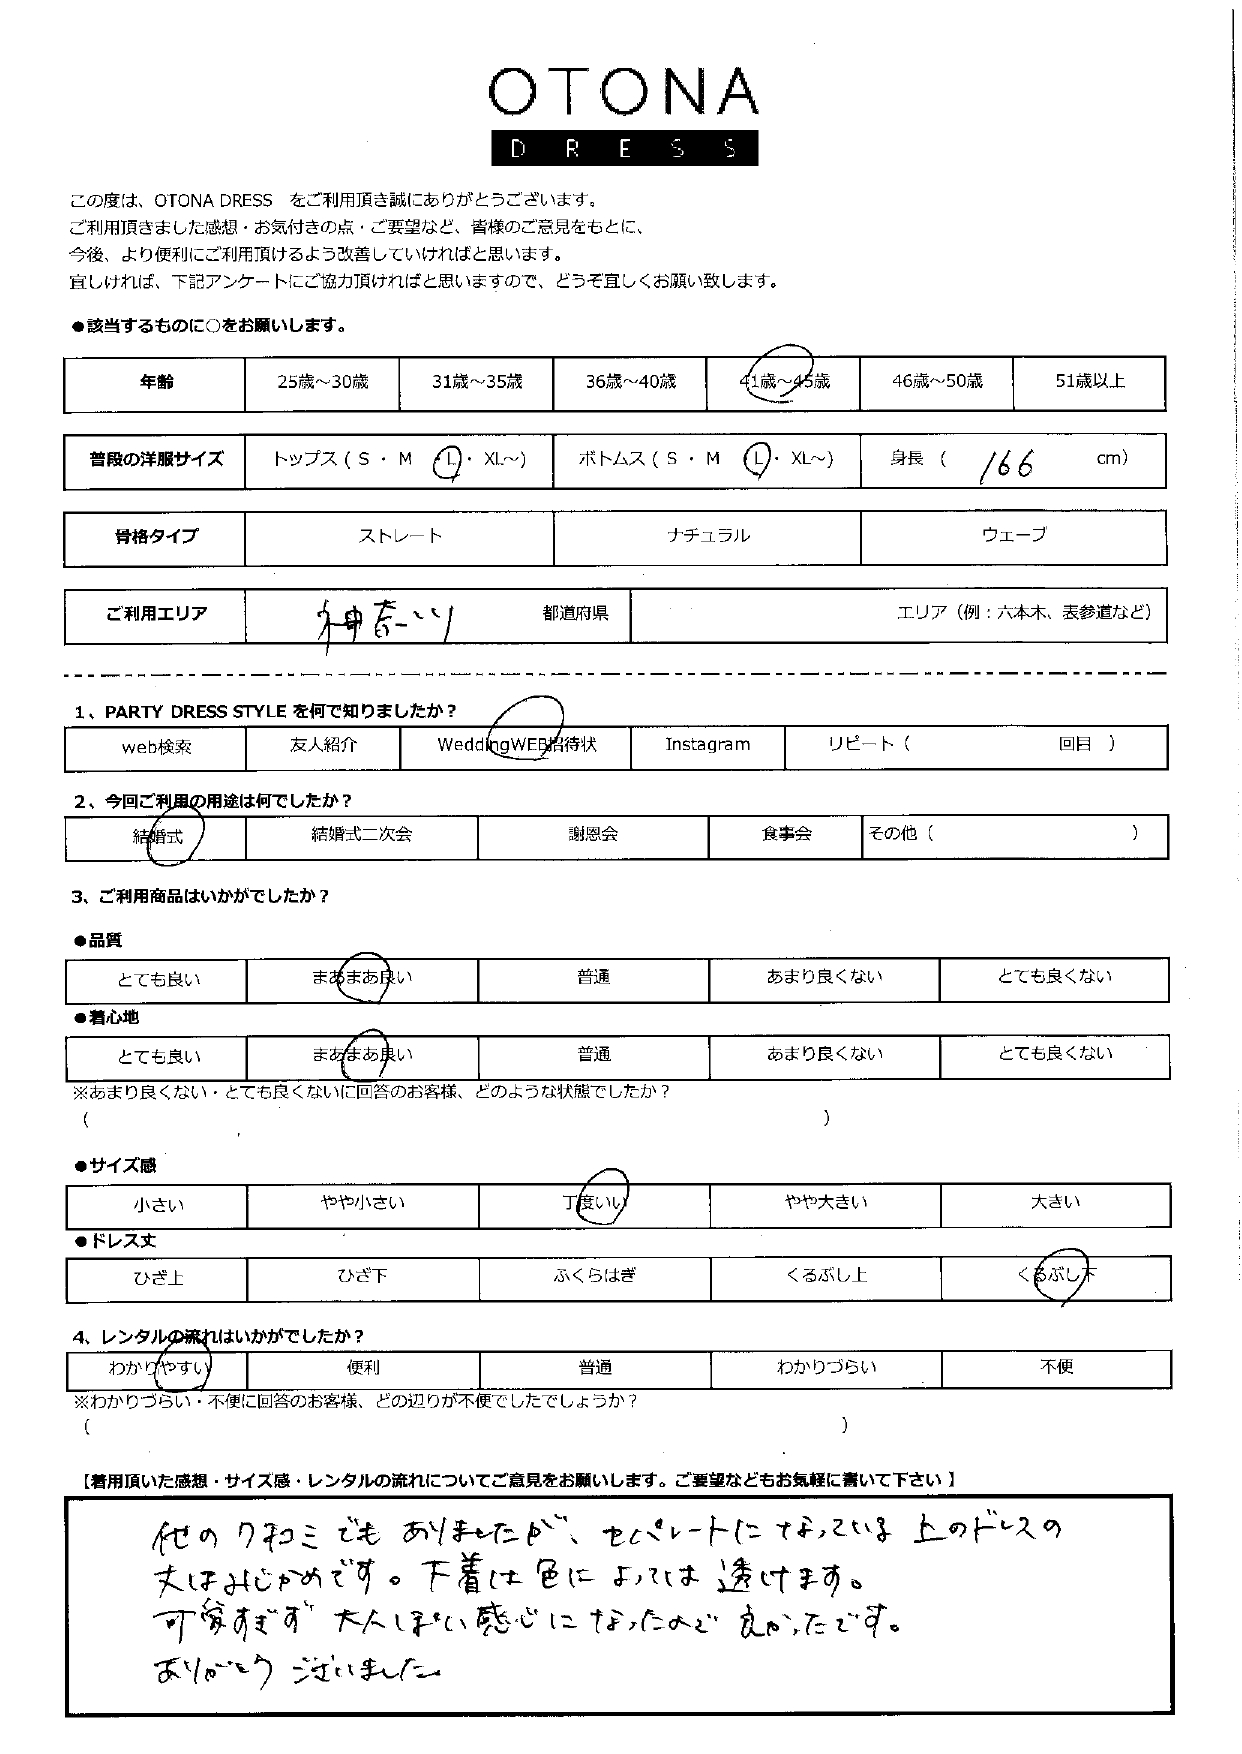 OTONA
DRESS
この度は、OTONA DRESS をご利用頂き誠にありがとうございます。
ご利用頂きました感想・お気付きの点・ご要望など、皆様のご意見をもとに、
今後、より便利にご利用頂けるよう改善していければと思います。
宜しければ、下記アンケートにご協力頂ければと思いますので、どうぞ宜しくお願い致します。
●該当するものに○をお願いします。
年齢 25歳～30歳 31歳～35歳 36歳～40歳 41歳～45歳 46歳～50歳 51歳以上
普段の洋服サイズ トップス ( S ・ M L ・ XL～) ボトムス ( S ・ M L ・ XL～) 身長 ( 166 cm)
骨格タイプ ストレート ナチュラル ウェーブ
ご利用エリア 神奈川 都道府県 エリア（例：六本木、表参道など）
1、PARTY DRESS STYLE を何で知りましたか？
web検索 友人紹介 WeddingWEB招待状 Instagram リピート ( 回目 )
2、今回ご利用の用途は何でしたか？
結婚式 結婚式二次会 謝恩会 食事会 その他 ( )
3、ご利用商品はいかがでしたか？
●品質
とても良い まあまあ良い 普通 あまり良くない とても良くない
●着心地
とても良い まあまあ良い 普通 あまり良くない とても良くない
※あまり良くない・とても良くないに回答のお客様、どのような状態でしたか？
( )
●サイズ感
小さい やや小さい 丁度いい やや大きい 大きい
●ドレス丈
ひざ上 ひざ下 ふくらはぎ くるぶし上 くるぶし下
4、レンタルの流れはいかがでしたか？
わかりやすい 便利 普通 わかりづらい 不便
※わかりづらい・不便に回答のお客様、どの辺りが不便でしたでしょうか？
( )
【着用頂いた感想・サイズ感・レンタルの流れについてご意見をお願いします。ご要望などもお気軽に書いて下さい】
他のク和コミでもありましたが、セパレートになっている上のドレスの
丈はみじかめです。下着は色によっては透けます。
可愛すぎず大人っぽい感じになったので良かったです。
ありがとうございました